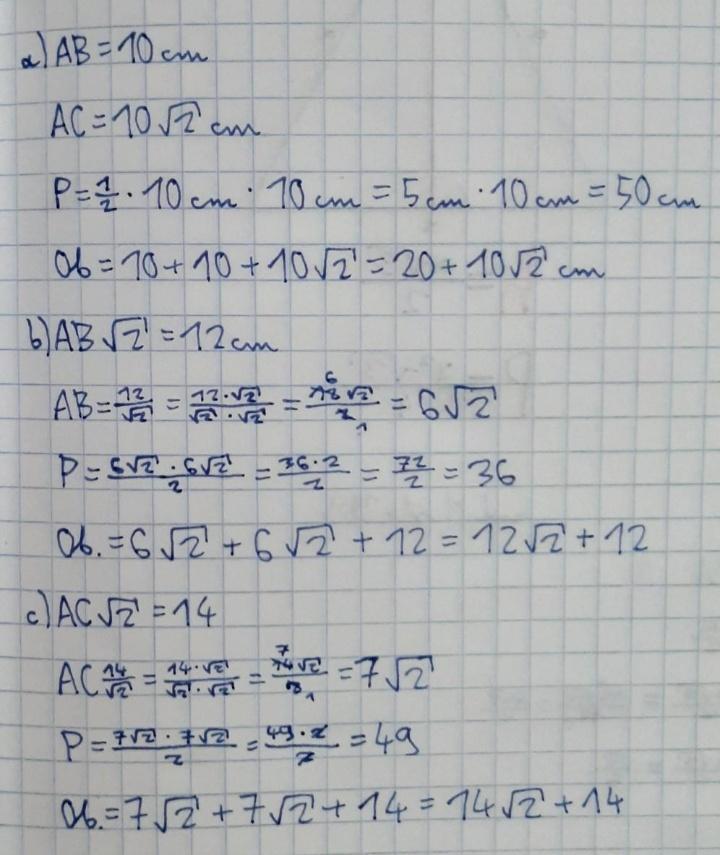 a) AB = 10 cm
AC = 10√2 cm
P = 1/2 · 10 cm · 10 cm = 5 cm · 10 cm = 50 cm
Ob = 10 + 10 + 10√2 = 20 + 10√2 cm
b) AB√2 = 12 cm
AB = 12/√2 = 12·√2/√2·√2 = 6 12√2/2 1 = 6√2
P = 6√2 · 6√2/2 = 36·2/2 = 72/2 = 36
Ob. = 6√2 + 6√2 + 12 = 12√2 + 12
c) AC√2 = 14
AC 14/√2 = 14·√2/√2·√2 = 7 14√2/2 1 = 7√2
P = 7√2 · 7√2/2 = 49·2/2 = 49
Ob. = 7√2 + 7√2 + 14 = 14√2 + 14